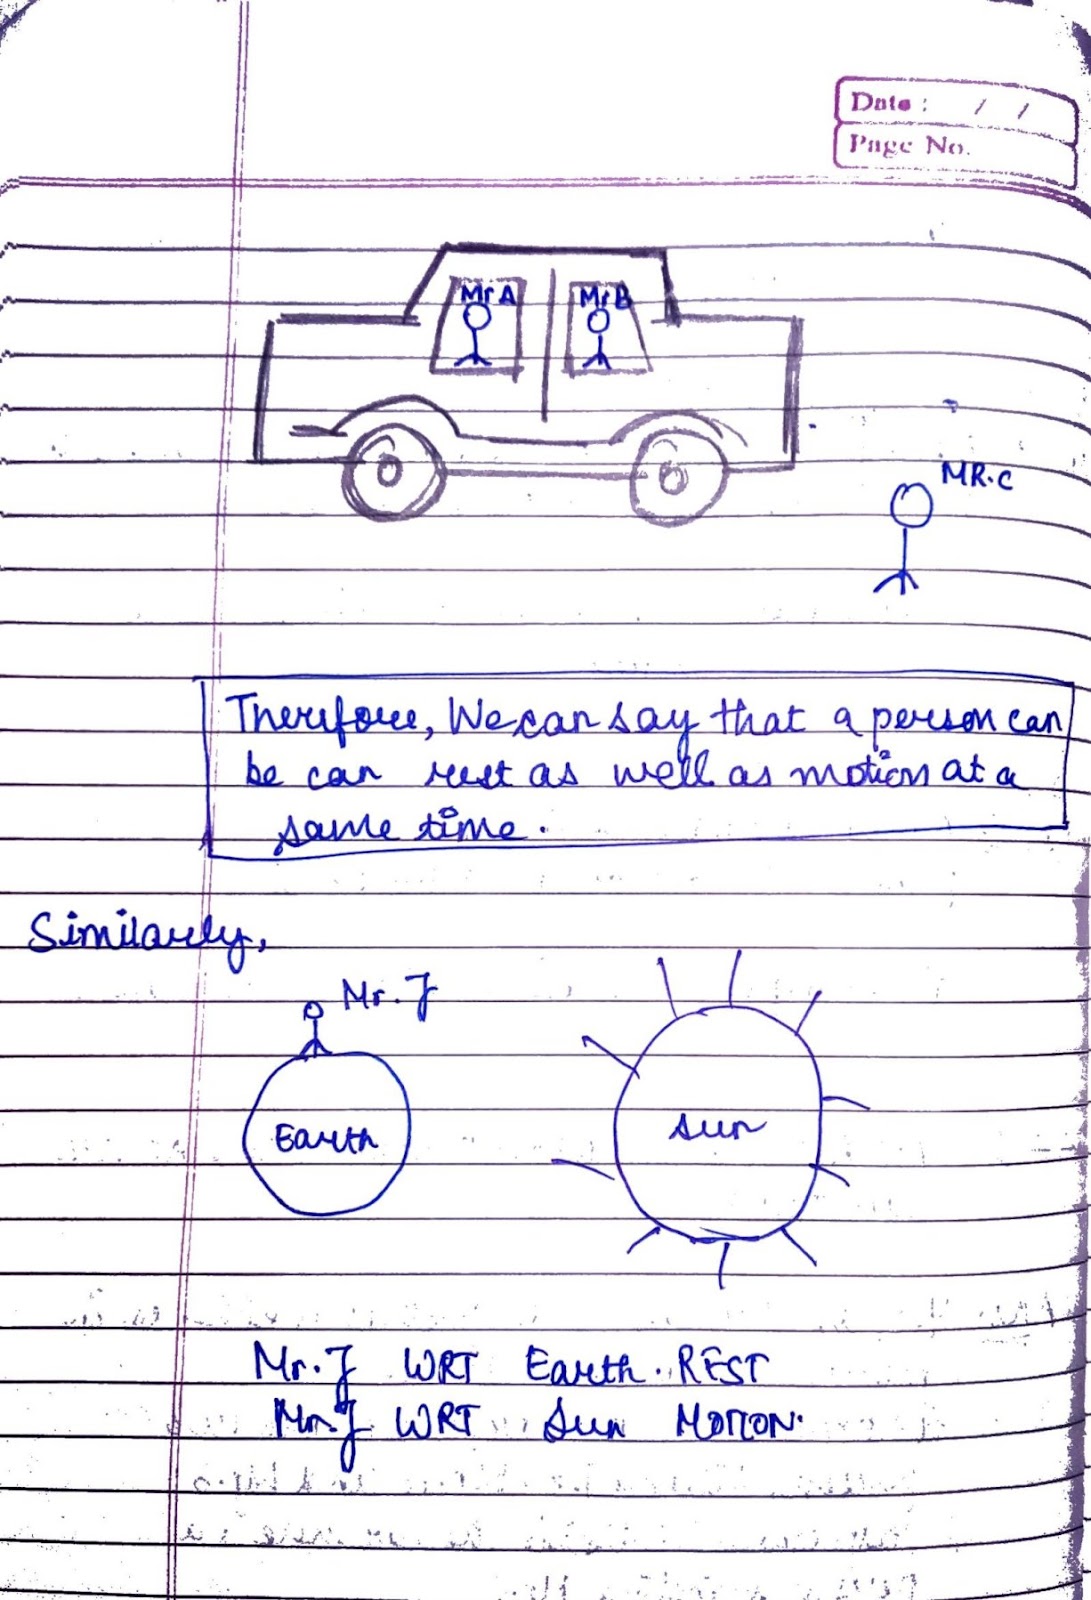 Date : / /
Page No.
Mr A Mr B
MR.C
Therefore, We can say that a person can
be can rest as well as motion at a
same time.
Similarly,
Mr. J
Earth
Sun
Mr. J WRT Earth. REST
Mr. J WRT Sun MOTION.